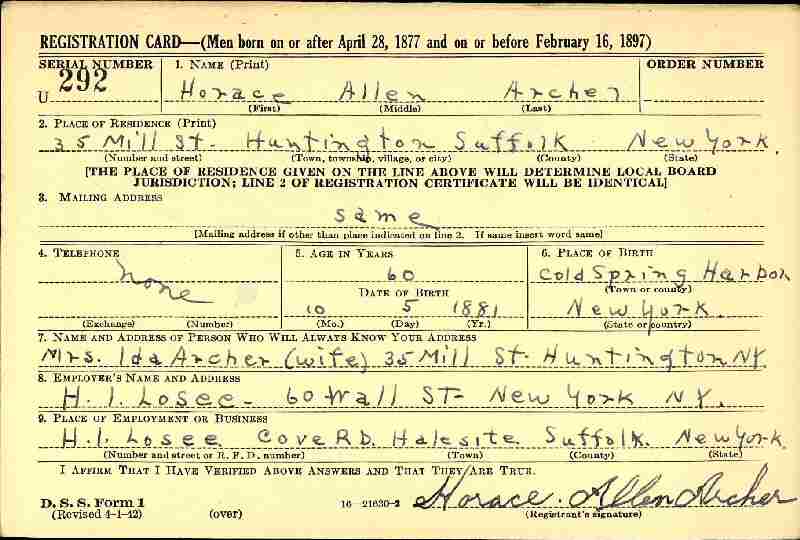 REGISTRATION CARD—(Men born on or after April 28, 1877 and on or before February 16, 1897)
SERIAL NUMBER 1. NAME (Print) ORDER NUMBER
U 292 Horace Allen Archer
(First) (Middle) (Last)
2. PLACE OF RESIDENCE (Print)
35 Mill St. Huntington Suffolk New York
(Number and street) (Town, township, village, or city) (County) (State)
[THE PLACE OF RESIDENCE GIVEN ON THE LINE ABOVE WILL DETERMINE LOCAL BOARD
JURISDICTION; LINE 2 OF REGISTRATION CERTIFICATE WILL BE IDENTICAL]
3. MAILING ADDRESS
same
[Mailing address if other than place indicated on line 2. If same insert word same]
4. TELEPHONE 5. AGE IN YEARS 6. PLACE OF BIRTH
none 60 Cold Spring Harbor
DATE OF BIRTH (Town or county)
10 5 1881 New York.
(Exchange) (Number) (Mo.) (Day) (Yr.) (State or country)
7. NAME AND ADDRESS OF PERSON WHO WILL ALWAYS KNOW YOUR ADDRESS
Mrs. Ida Archer (wife) 35 Mill St. Huntington NY.
8. EMPLOYER'S NAME AND ADDRESS
H. I. Losee - 60 Wall St- New York NY.
9. PLACE OF EMPLOYMENT OR BUSINESS
H. I. Losee Cove RD. Halesite Suffolk. New York.
(Number and street or R. F. D. number) (Town) (County) (State)
I AFFIRM THAT I HAVE VERIFIED ABOVE ANSWERS AND THAT THEY ARE TRUE.
D. S. S. Form 1 16—21630-2 Horace Allen Archer
(Revised 4-1-42) (over) (Registrant's signature)